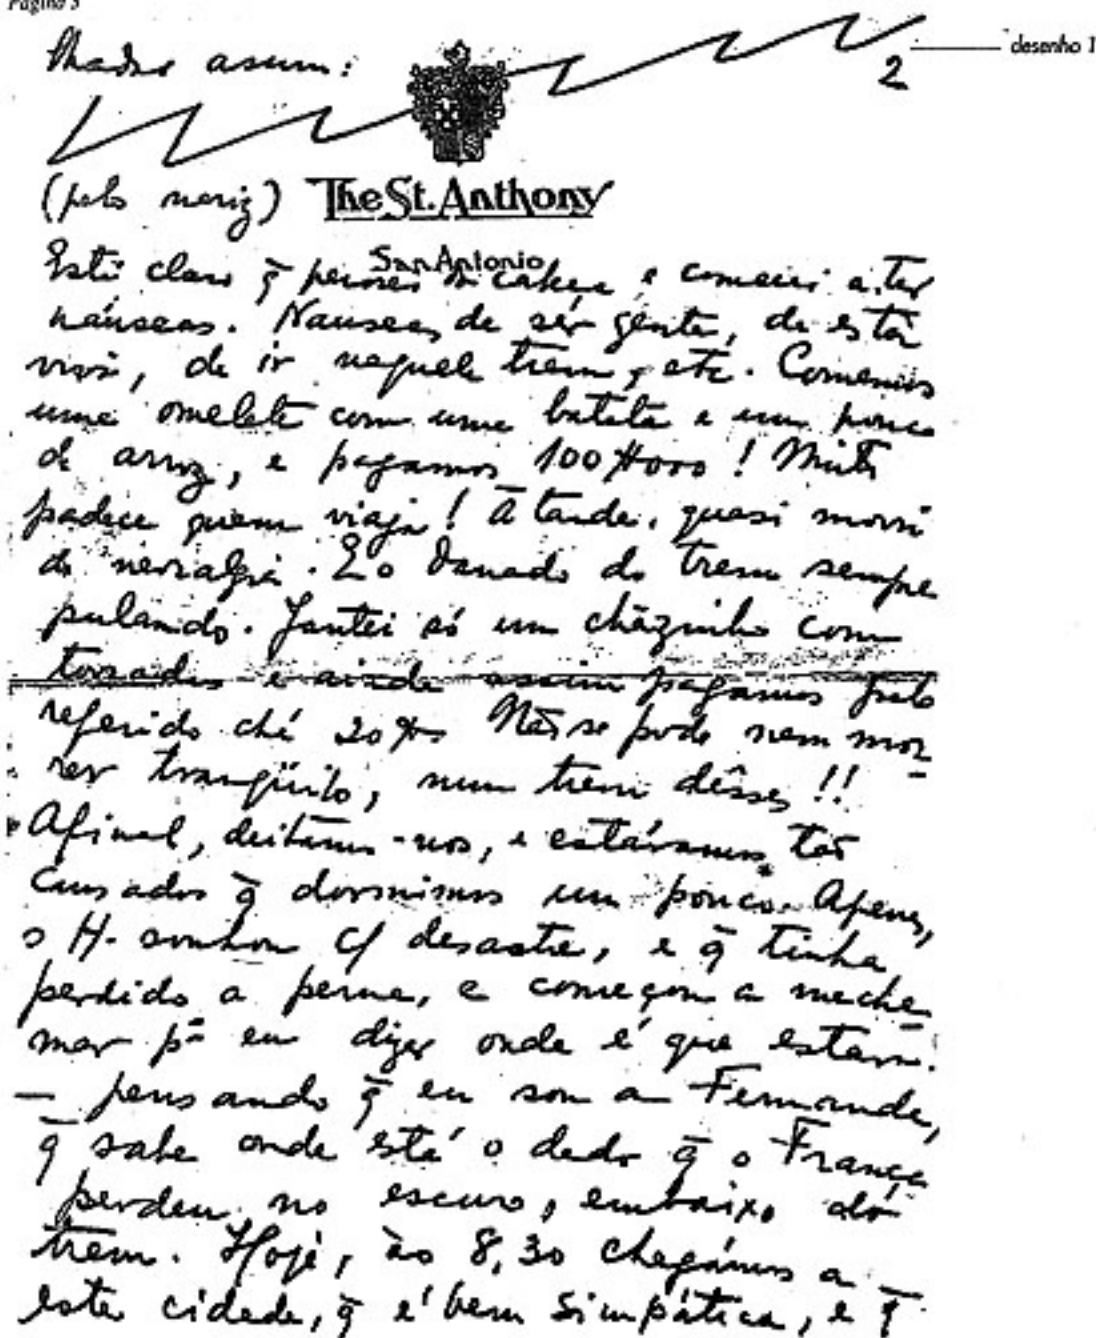 Página 3
desenho 1
2
assim:
(pelo nariz) The St. Anthony
San Antonio
Está claro q̄ perdi a cabeça e comecei a ter
náuseas. Nauseas de sêr gente, de estar
viva, de ir naquele trem, etc. Comemos
uma omelete com uma batata e um pouco
de arroz, e pagamos 100$000! Muito
padece quem viaja! À tarde, quasi morri
de nevralgia. E o danado do trem sempre
pulando. Jantei só um chàzinho com
torradas e ainda assim pagamos pelo
referido chá 20$ Não se pode nem mor-
rer tranqüilo, num trem dêsses!!
Afinal, deitámo-nos, e estávamos tão
cansados q̄ dormimos um pouco. Apenas,
o H. sonhou c/ desastre, e q̄ tinha
perdido a perna, e começou a me cha-
mar pª eu dizer onde é que estava.
— pensando q̄ eu sou a Fernanda,
q̄ sabe onde está o dedo q̄ o França
perdeu no escuro, embaixo do
trem. Hoje, às 8,30 chegámos a
esta cidade, q̄ é bem simpática, e q̄